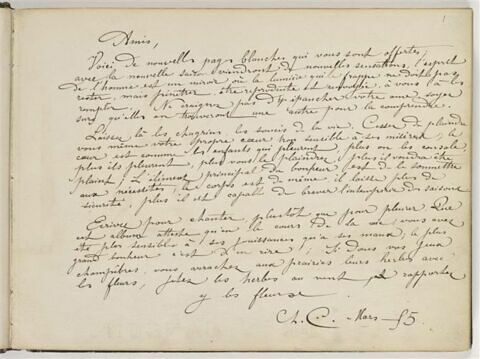 1
Amis,
Voici de nouvelles pages blanches qui vous sont offertes;
avec la nouvelle saison viendront de nouvelles sensations, l'esprit
de l'homme est un miroir où la lumière qui le frappe ne doit pas
rester, mais pénétrer, être reproduite et renvoyée, à vous à les
remplir. Ne craignez pas d'y épancher votre âme, soyez
surs qu'elles en trouveront une autre pour la comprendre.
Laissez là les chagrins, les soucis de la vie. Cessez de plaindre
vous même votre propre cœur trop sensible à ses misères; le
cœur est comme les enfants qui pleurent, plus on les console
plus ils pleurent, plus vous le plaindrez, plus il voudra être
plaint; l'élément principal du bonheur est de le soumettre
aux nécessités, le corps est de même, il laisse plus de
sécurité, plus il est capable de braver l'intempérie des saisons
Ecrivez pour chanter, plustôt que pour pleurer. Que
cet album atteste qu'en le cours de la vie, vous avez
été plus sensibles à ses jouissances qu'à ses maux, le plus
grand bonheur c'est d'en rire! Si dans vos jeux
champêtres, vous arrachez aux prairies leurs herbes avec
les fleurs, jetez les herbes au vent, et rapportez
y les fleurs.
Ch. C. Mars 55